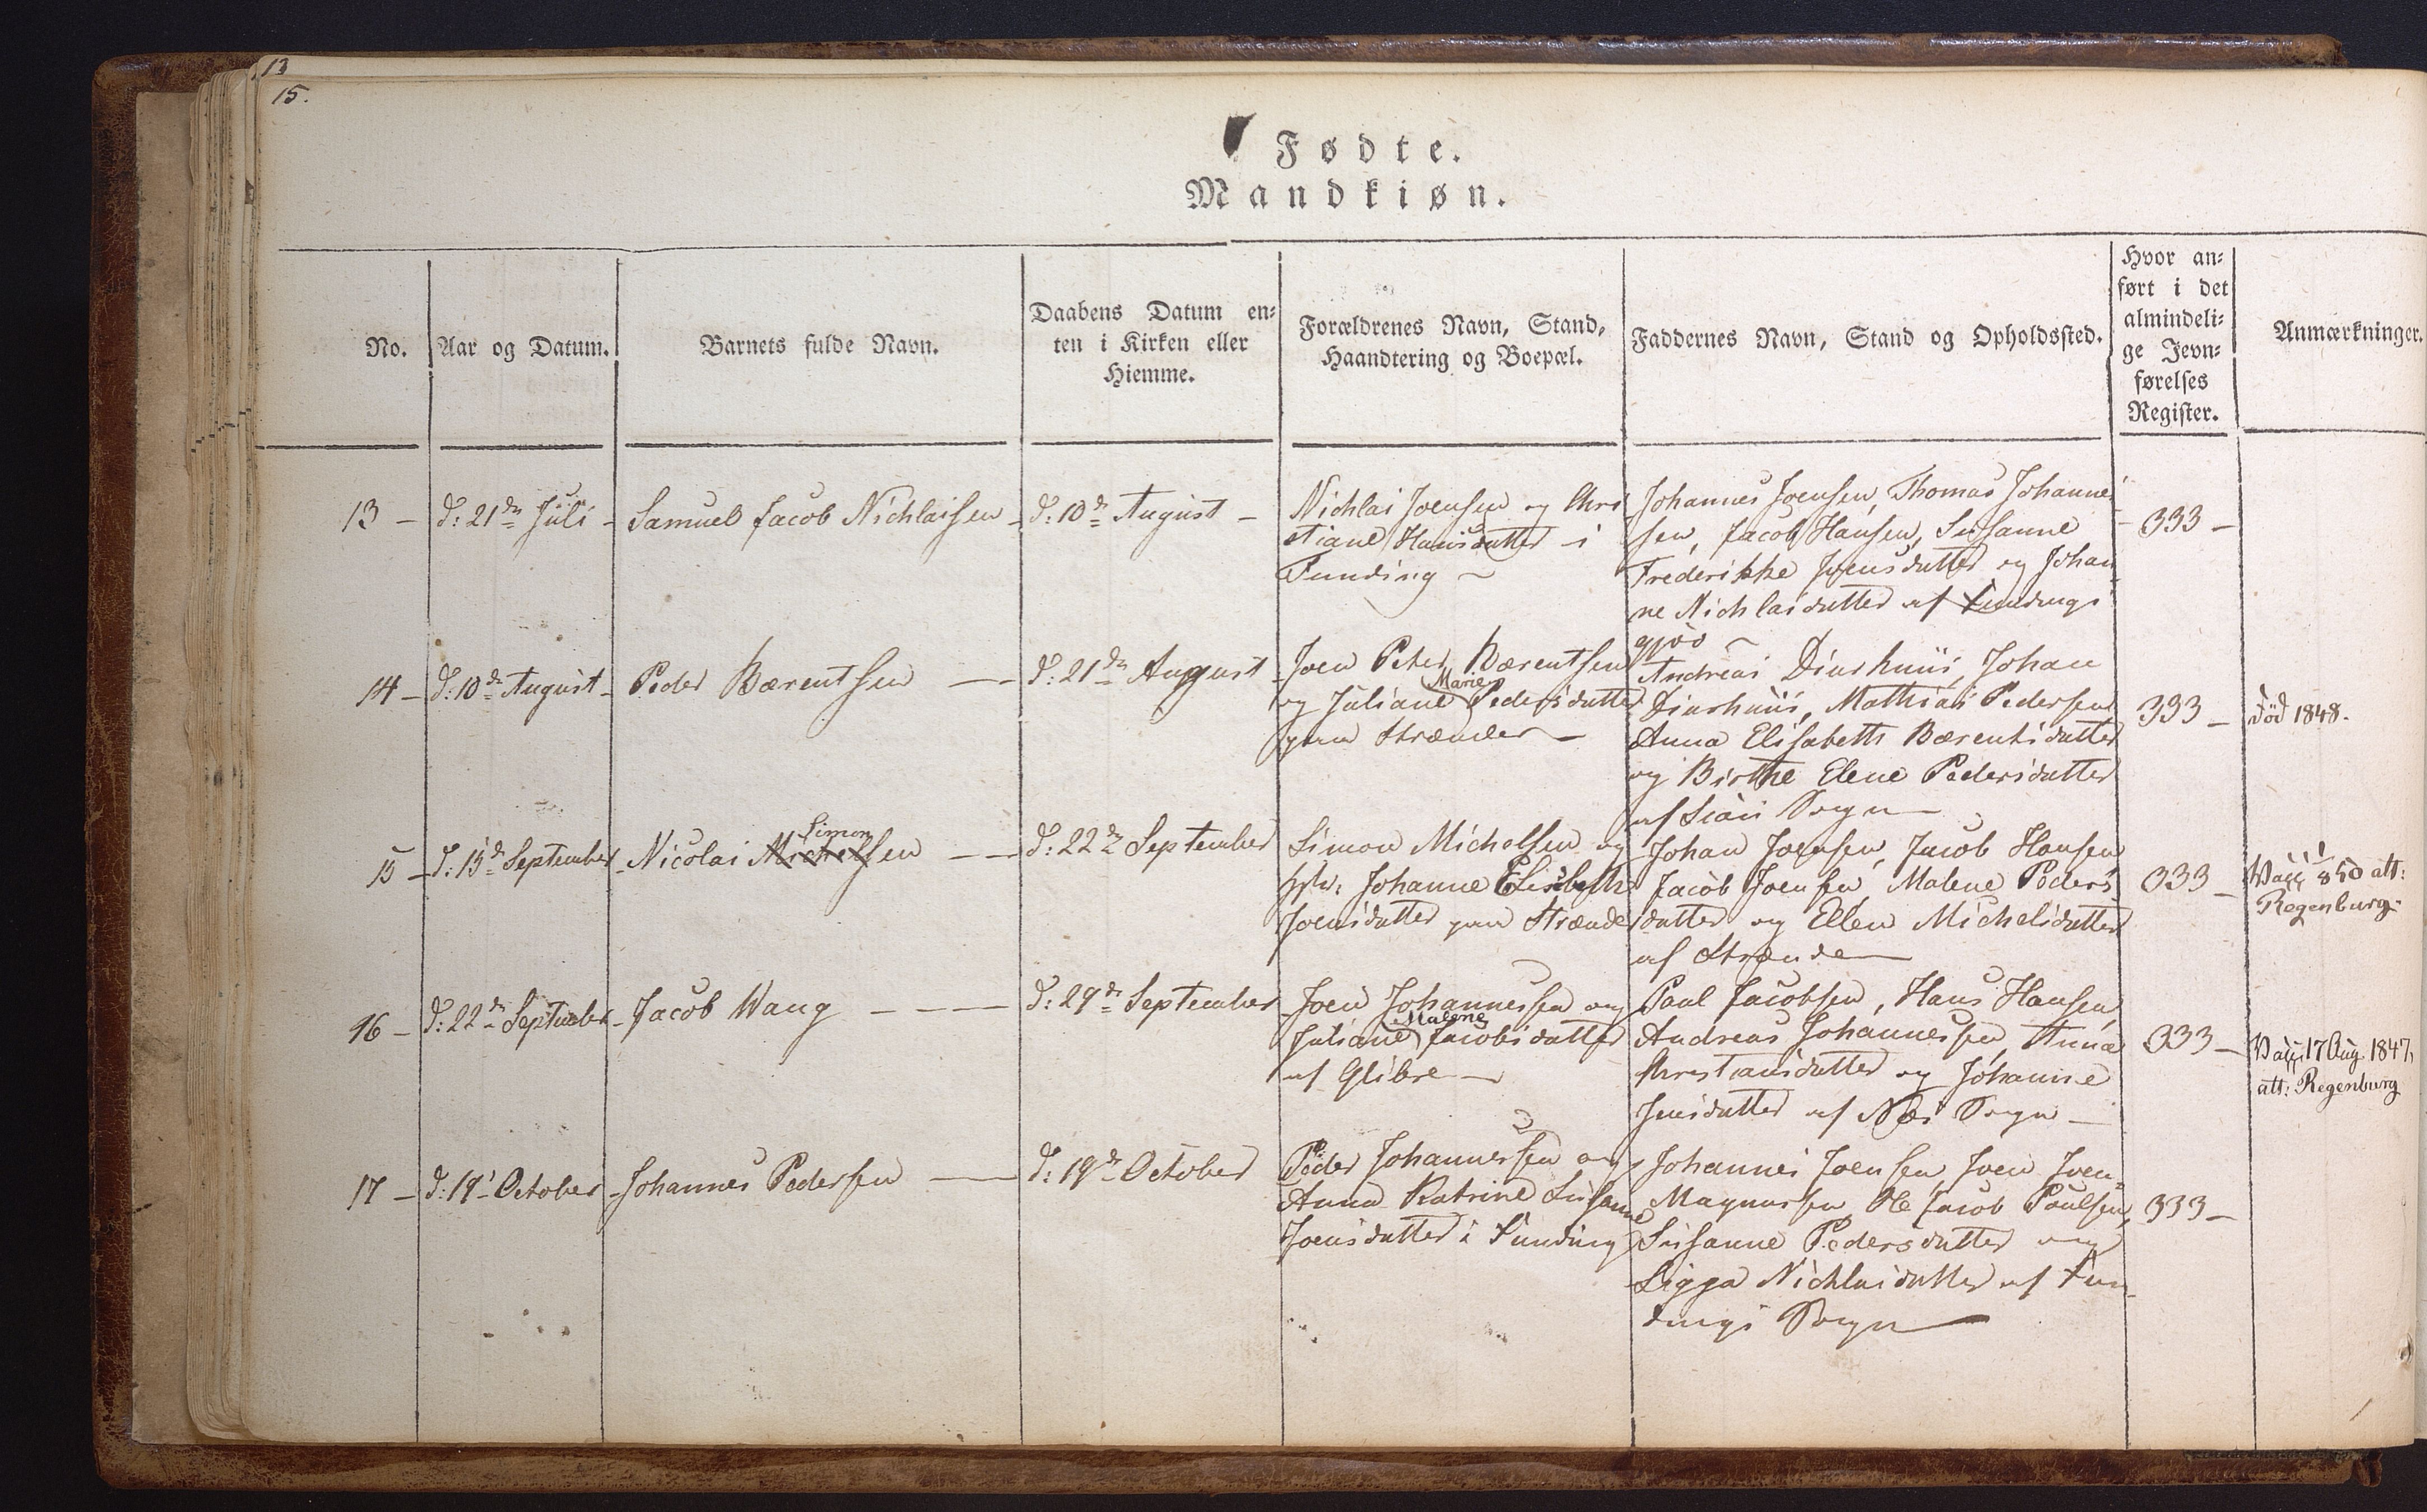 13
15.
Fødte.
Mandkiøn.
No.
Aar og Datum.
Barnets fulde Navn.
Daabens Datum en-
ten i Kirken eller
Hiemme.
Forældrenes Navn, Stand,
Haandtering og Boepæl.
Faddernes Navn, Stand og Opholdssted.
Hvor an-
ført i det
almindeli-
ge Jevn-
førelses
Register.
Anmærkninger.
13 -
d: 21de Juli -
Samuel Jacob Nichlaisen -
d: 10de August -
Nichlai Joensen og Chri
stiane Hansdatter - i
Funding -
Johannes Joensen, Thomas Johannes
sen, Jacob Hansen, Susanne
Frederikke Joensdatter og Johan
ne Nichlaisdatter af Fundings
333 -
14 -
d: 10de August -
Peder Bærentsen
d: 21de August
Joen Peter Bærentsen
og Juliane Marie Pedersdatter
paa Strænder -
Andreas Diurhuus, Johan
Diurhuus, Mathias Pedersen
Anna Elisabeth Bærentsdatter
og Birthe Elene Pedersdatter
af Siøv Sogn
333 -
Död 1848.
15 -
d: 15de September
Nicolai Michelsen
Simon
d: 22de September
Simon Michelsen og
Johanne Elisabeth
Joensdatter paa Strænder
Johan Joensen, Jacob Hansen
Jacob Joensen, Malene Peders
datter og Ellen Michelsdatter
af Strænder
333 -
Vacc 1850 att:
Regenburg.
16 -
d: 22de September -
Jacob Waag
d: 29de September
Joen Johannessen og
Juliane Malene Jacobsdatter
af Glibre
Poul Jacobsen, Hans Hansen,
Andreas Johannessen, Anna
Christiansdatter og Johanne
Jensdatter af Næs Sogn -
333 -
Vacc. 17 Aug. 1847,
att: Regenburg
17 -
d: 19 October -
Johannes Pedersen
d: 19de October
Peder Johannessen og
Anna Katrine Susanne
Joensdatter i Funding
Johannes Joensen, Joen Joen-
Magnussen, Jacob Poulsen,
Susanne Pedersdatter og
Sigga Nichlaisdatter af Fun-
dings Sogn
333 -